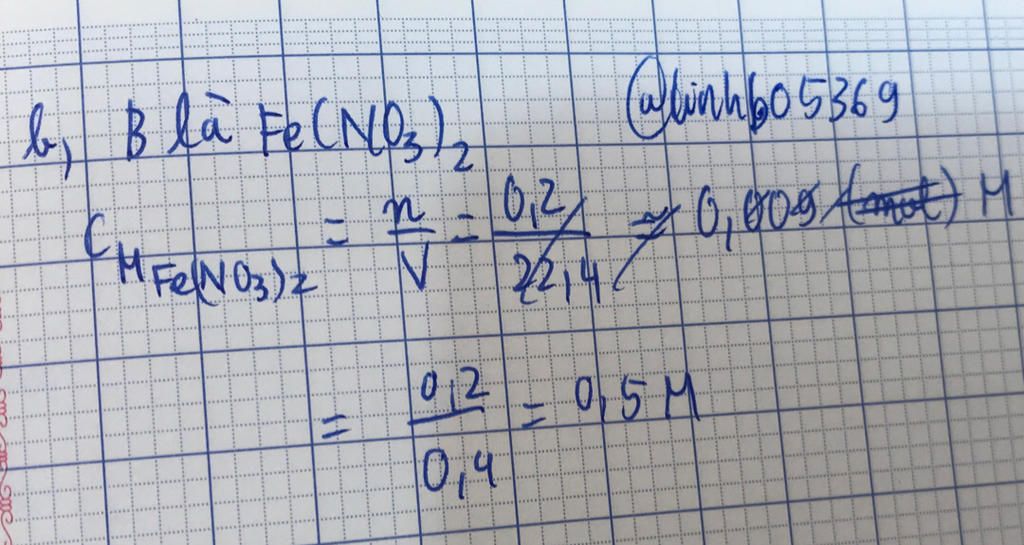 b, B là Fe(NO3)2 @linhb05369
CM Fe(NO3)2 = n/V = 0,2/22,4 ≈ 0,009 (mol) M
= 0,2/0,4 = 0,5 M